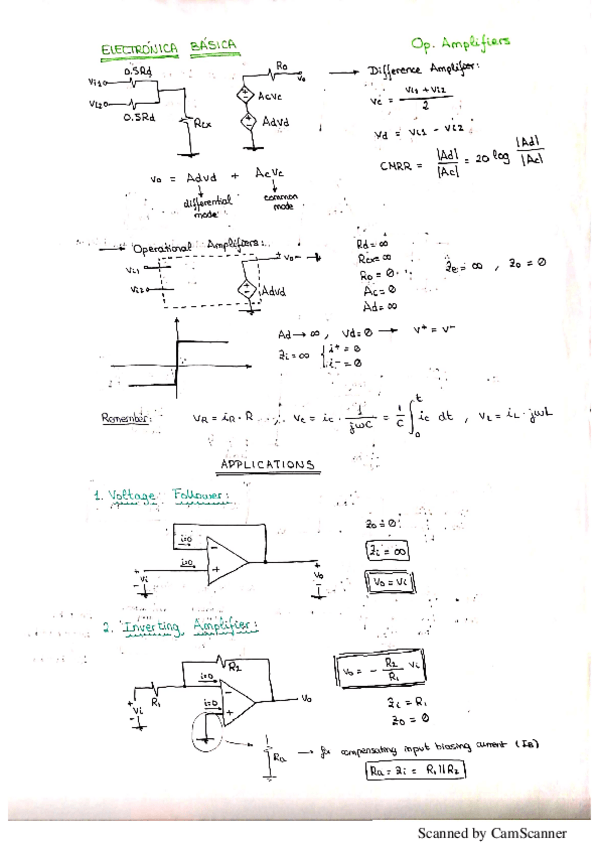 ELECTRÓNICA BÁSICA
Op. Amplifiers
0.5Rd
Vi1
Vi2
0.5Rd
Rcx
Ro
Vo
AcVc
AdVd
→ Difference Amplifier:
Vc = (Vi1 + Vi2) / 2
Vd = Vi1 - Vi2
CMRR = |Ad| / |Ac| = 20 log |Ad| / |Ac|
Vo = AdVd + AcVc
differential mode
common mode
→ Operational Amplifiers:
Vi1
Vi2
Vo
AdVd
Rd = ∞
Rcx = ∞
Ro = 0
Ac = 0
Ad = ∞
, Zo = 0
Ad → ∞ , Vd = 0 → V+ = V-
Zi = ∞ { i+ = 0
i- = 0
Remember: VR = iR · R , Vc = ic · 1/jωC = 1/C ∫₀ᵗ ic dt , VL = iL · jωL
APPLICATIONS
1. Voltage Follower:
i=0
i=0
-
+
Vi
Vo
Zo = 0
Zi = ∞
Vo = Vi
2. Inverting Amplifier:
R2
R1
i=0
i=0
-
+
Vi
Vo
Vo = - R2/R1 Vi
Zi = R1
Zo = 0
Ra → for compensating input biasing current (IB)
Ra = Zi = R1 || R2
Scanned by CamScanner